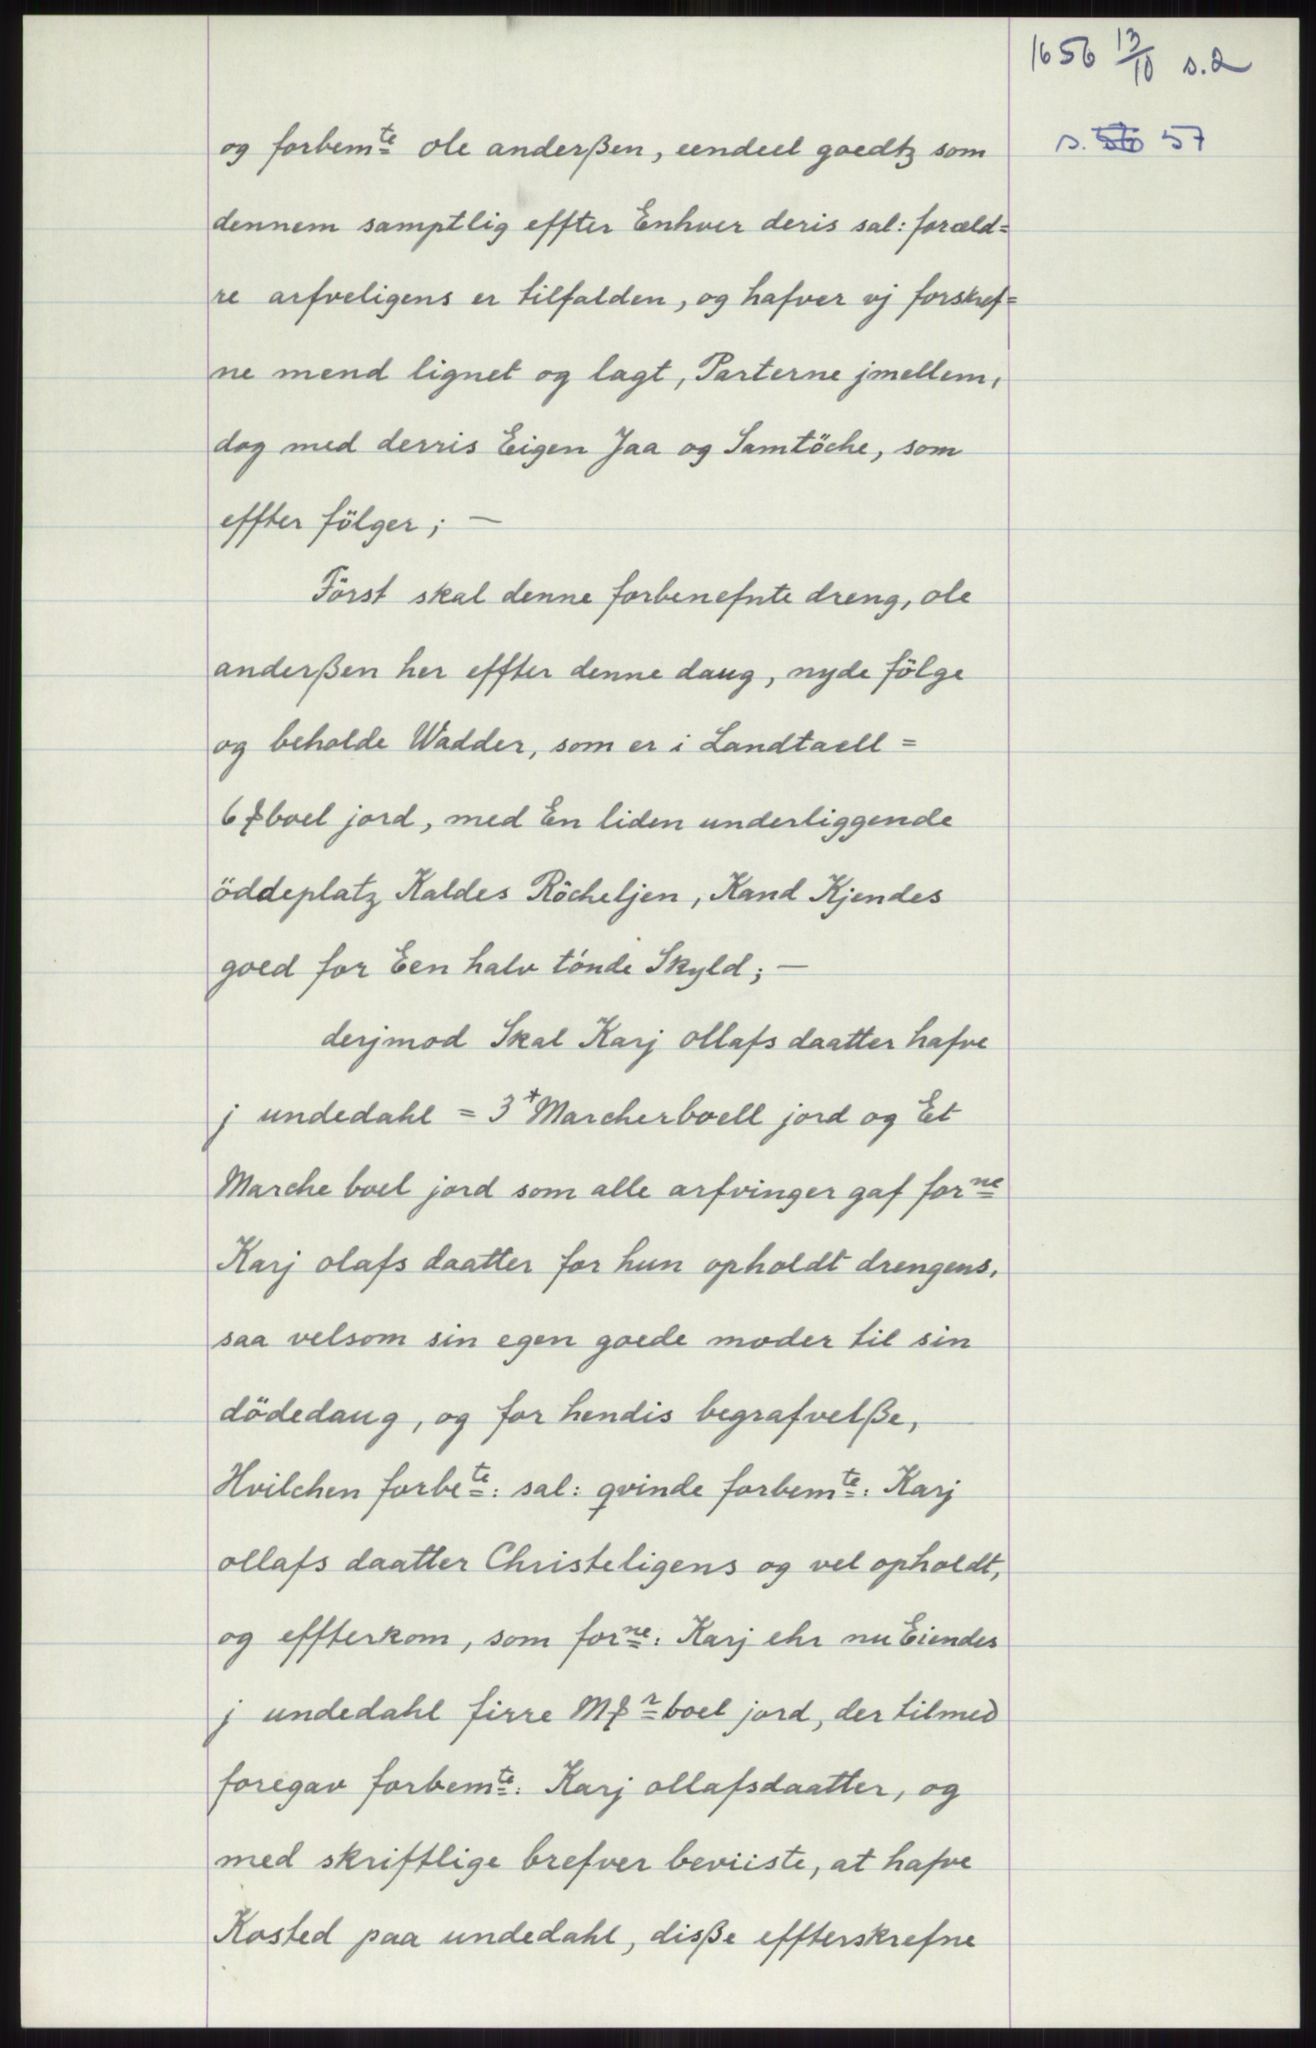 1656 13/10 s.2
s. 57
og forbemte ole anderßen, eendeel goedtz som
dennem samptlig effter Enhver deris sal: foræld=
re arfveligens er tilfalden, og hafver vj forskref=
ne mend lignet og lagt, Parterne jmellem,
dog med derris Eigen Jaa og Samtöche, som
effter fölger; —
Först skal denne forbenefnte dreng, ole
anderßen her effter denne daug, nyde fölge
og beholde Wadder, som er i Landtaell =
6 ₰boel jord, med En liden underliggende
öddeplatz Kaldes Röcheljen, Kand Kjendes
goed for Een halv tónde Skyld; —
derjmod Skal Karj ollafs daatter hafve
j undedahl = 3* Marcherboell jord og Et
Marche boel jord som alle arfvinger gaf forne
Karj olafs daatter for hun opholdt drengens,
saa velsom sin egen goede moder til sin
dödedaug, og for hendis begrafvelße,
Hvilchen forbete: sal: qvinde forbemte: Karj
ollafs daatter Christeligens og vel opholdt,
og effterkom, som forne: Karj ehr nu Eiendes
j undedahl firre M₰r boel jord, der tilmed
foregav forbemte: Karj ollafsdaatter, og
med skriftlige brefver beviiste, at hafve
Kosted paa undedahl, disße effterskrefne